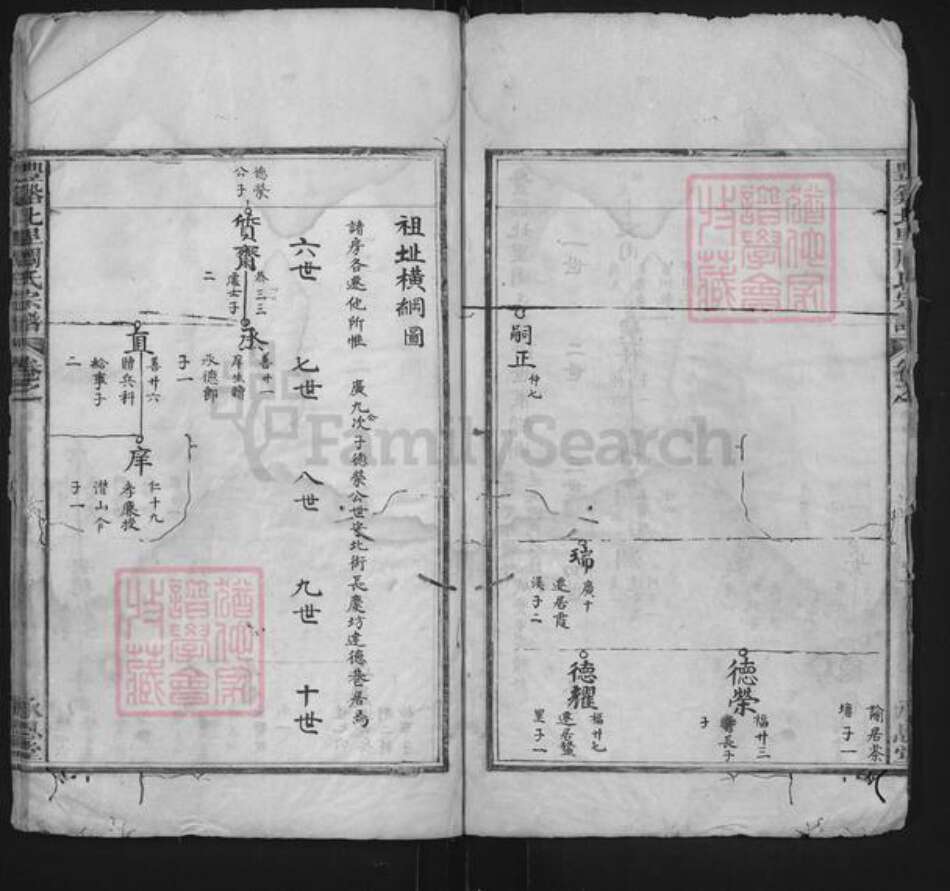 嗣正
仲七
瑞
廣十
遷居霞
溪子二
德榮
福廿三
子
德耀
福廿七
遷居
里子一
居茶
塘子一
祖址橫綱圖
諸序各遷他所惟
廣九公次子德榮公世安北街長慶坊達德巷居焉
六世
七世
八世
九世
十世
德榮
公子
質齋
恭三三
處士子
二
丞
善廿一
庠生贈
承德郎
子一
直
善廿六
贈兵科
給事子
二
庠
仁十九
孝廉授
潛山令
子一
豐
北里周氏宗譜
卷之一
FamilySearch